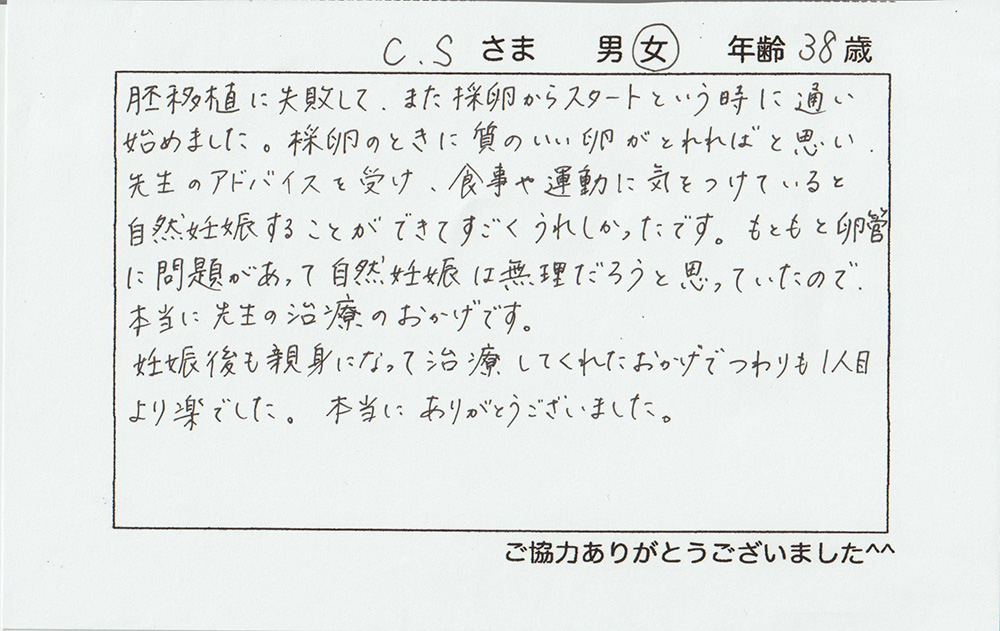 C.S さま 男 女 年齢 38 歳
胚移植に失敗して、また採卵からスタートという時に通い
始めました。採卵のときに質のいい卵がとれればと思い、
先生のアドバイスを受け、食事や運動に気をつけていると
自然妊娠することができてすごくうれしかったです。もともと卵管
に問題があって自然妊娠は無理だろうと思っていたので、
本当に先生の治療のおかげです。
妊娠後も親身になって治療してくれたおかげでつわりも1人目
より楽でした。本当にありがとうございました。
ご協力ありがとうございました^^